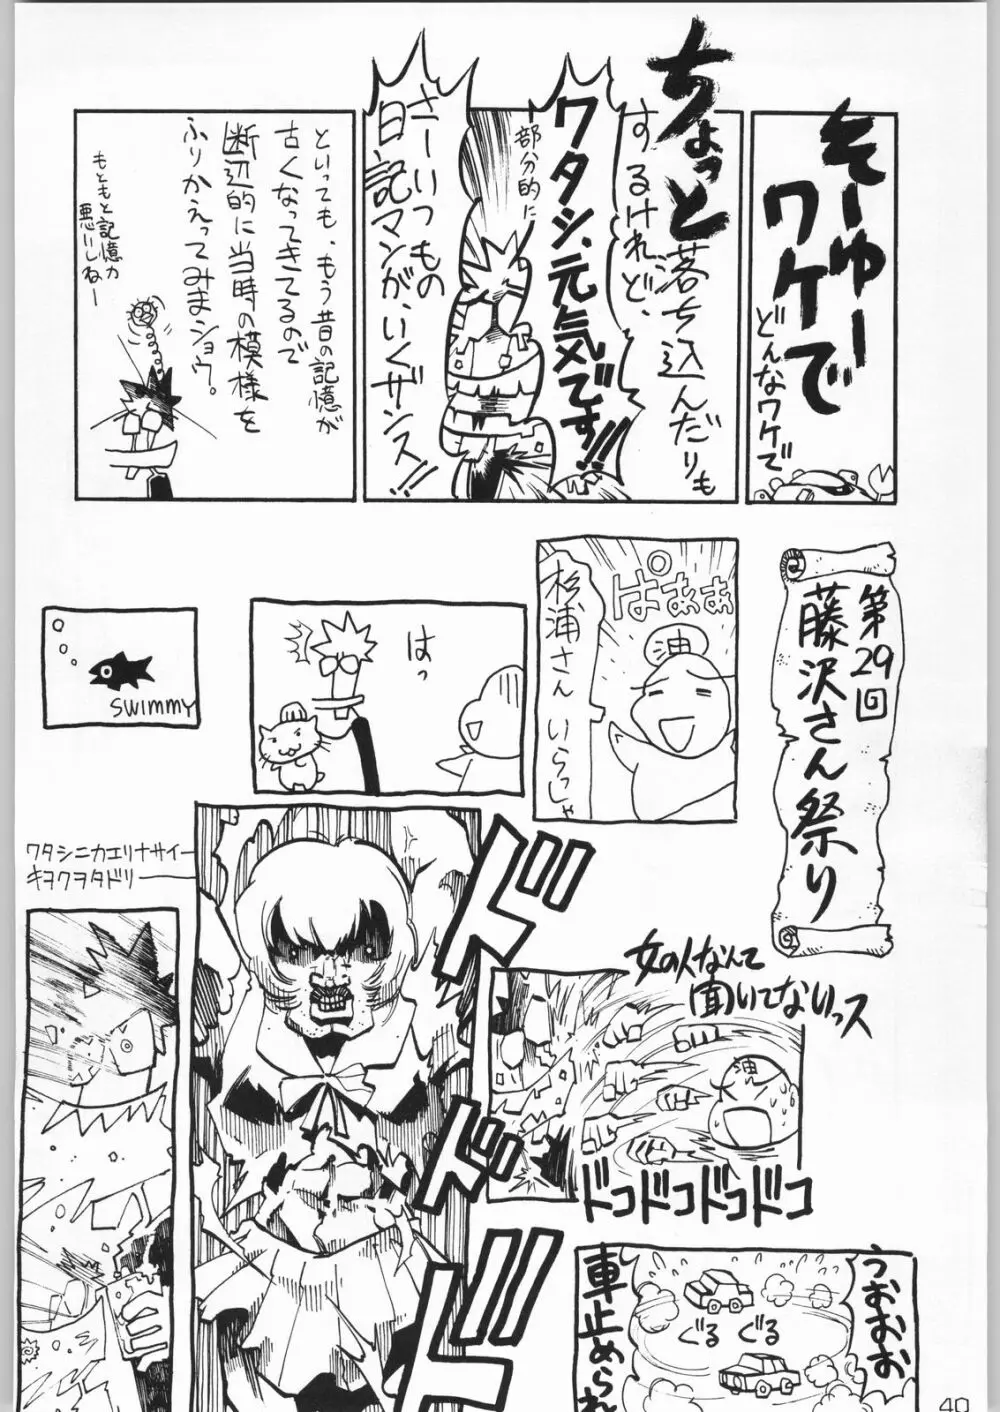 そーゆー
ワケで
どんなワケで
ちょっと
落ち込んだりも
するけれど、
ワタシ、元気です!!
部分的に
さーいつもの
日記マンガ、いくザンス!!
といっても、もう昔の記憶が
古くなってきてるので
断辺的に当時の模様を
ふりかえってみまショウ。
もともと記憶力
悪いしねー
第29回
藤沢さん祭り
ぱぁぁぁ
油
杉浦さん いらっしゃ
はっ
SWIMMY
ワタシニカエリナサイー
キヲクヲタドリ——
ドドド
女の人なんて
聞いてないっス
油
ドコドコドコドコ
うおおお
ぐる ぐる
車止められ
40